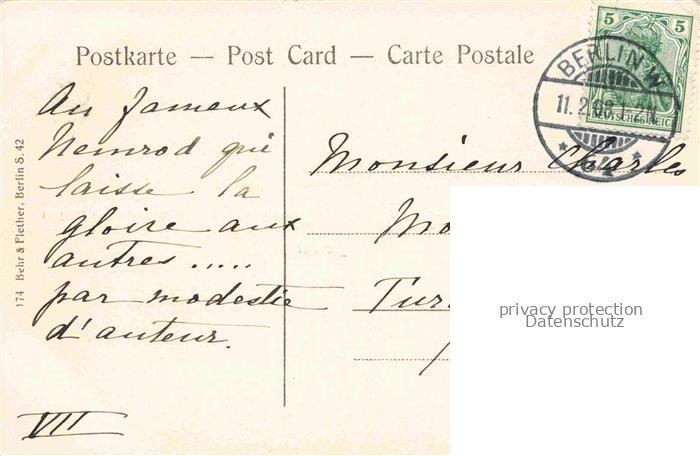 Postkarte — Post Card — Carte Postale
5 5
DEUTSCHES REICH
BERLIN W.
11.2.08.1-2N.
Au fameux
Nemrod qui
laisse la
gloire aux
autres.....
par modestie
d'auteur.
VII
Monsieur Charles
Mo
Tur
174 Behr & Flether, Berlin S. 42
privacy protection
Datenschutz